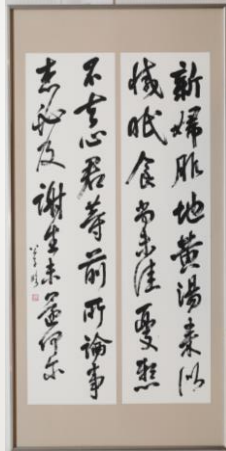 新婦服地黄湯来似
減眠食尚未佳憂懸
不去心君等前所論事
想必及謝生未還何尔